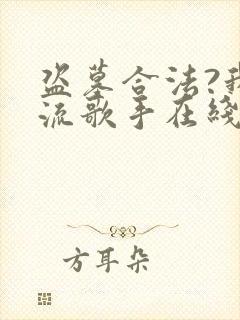 盗墓合法?我
流歌手在线
方耳朵